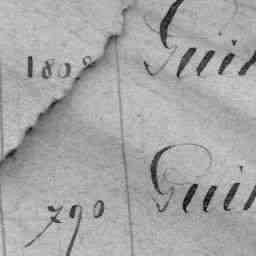 1808 Guin
790 Guin